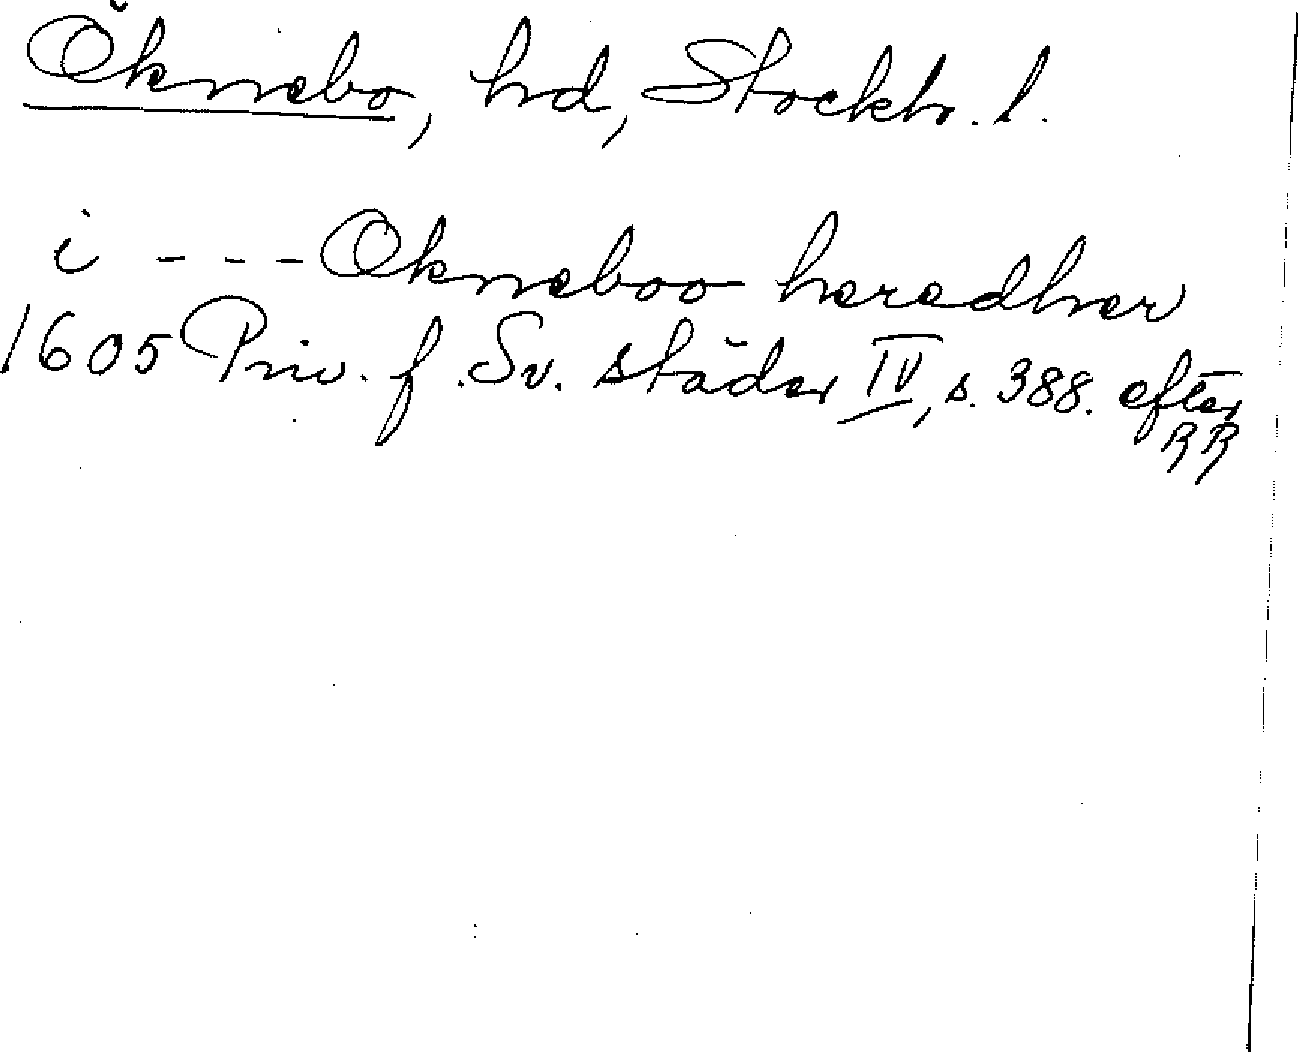 Öknebo, hd, Stockh. l.
i - - - Okneboo heredher
1605 Priv. f. Sv. städer IV, s. 388. efter
RR